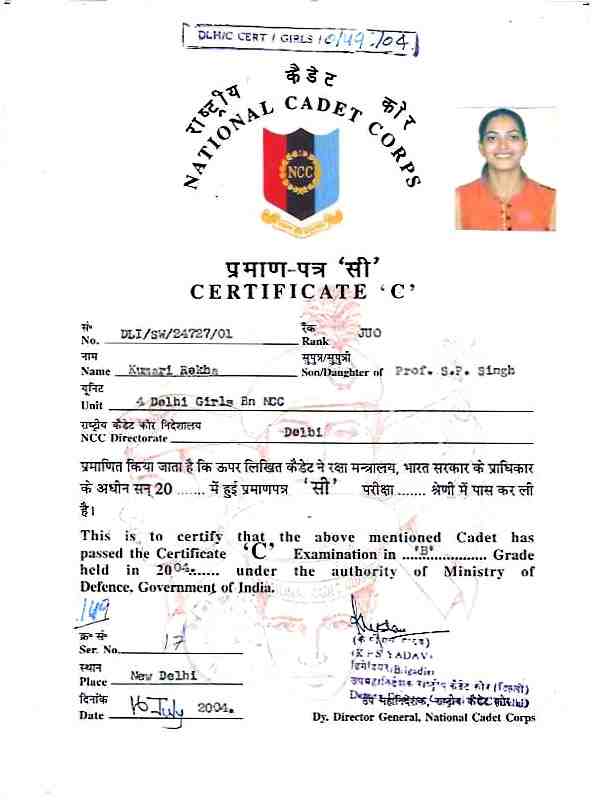 DLH/C CERT / GIRLS / 0/149/04.
राष्ट्रीय कैडेट कोर
NATIONAL CADET CORPS
NCC
प्रमाण-पत्र 'सी'
CERTIFICATE 'C'
सं॰ रैंक
No. DLI/SW/24727/01 Rank JUO
नाम सुपुत्र/सुपुत्री
Name Kumari Rekha Son/Daughter of Prof. S.P. Singh
यूनिट
Unit 4 Delhi Girls Bn NCC
राष्ट्रीय कैडेट कोर निदेशालय
NCC Directorate Delhi
प्रमाणित किया जाता है कि ऊपर लिखित कैडेट ने रक्षा मन्त्रालय, भारत सरकार के प्राधिकार
के अधीन सन् 20 ....... में हुई प्रमाणपत्र 'सी' परीक्षा ....... श्रेणी में पास कर ली
है।
This is to certify that the above mentioned Cadet has
passed the Certificate 'C' Examination in ..."B"................. Grade
held in 2004....... under the authority of Ministry of
Defence, Government of India.
149
क्र॰ सं॰
Ser. No. 17
(K P S YADAV)
स्थान ब्रिगेडियर/Brigadier
Place New Delhi उपमहानिदेशक राष्ट्रीय कैडेट कोर (दिल्ली)
दिनांक उप महानिदेशक, राष्ट्रीय कैडेट कोर
Date 16 July 2004. Dy. Director General, National Cadet Corps